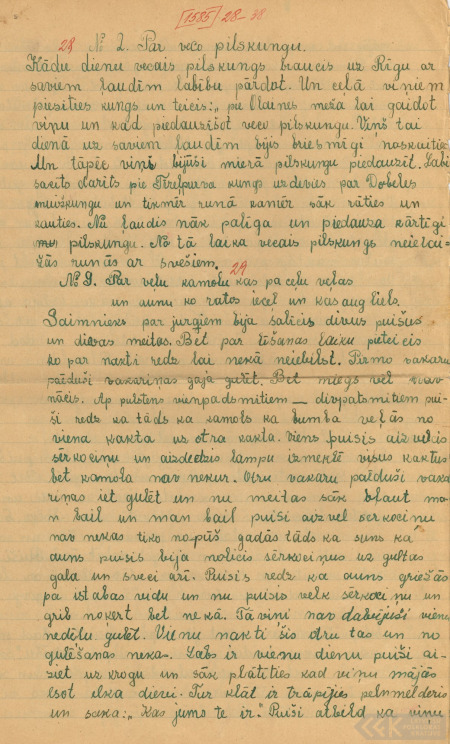 [1585] 28-38
28 № 2. Par veco pilskungu.
Kādu dienu vecais pilskungs braucis uz Rīgu ar
saviem ļaudīm labību pārdot. Un ceļā viņiem
piesities kungs un teicis: „pu Olaines meža lai gaidot
viņu un kad piedauzīšot veco pilskungu. Viņš tai
dienā uz saviem ļaudīm bijis briesmīgi noskaities
Un tāpēc viņi bijuši mierā pilskungu piedauzīt. Labi
sacīts darīts pie Tīreļpurva kungs uzdevās par Dobeles
muižkungu un tikmēr runā kamēr sāk rāties un
kauties. Nu ļaudis nāk palīga un piedauza kārtīgi
pilskungu. No tā laika vecais pilskungs neielai-
žās runās ar svešiem.
29
№ 3. Par velu kamolu kas pa ceļu veļas
un aunu ko rātos iecel un kas aug liels.
Saimnieks par jurģiem bija salīcis divus puišus
un divas meitas. Bet par līšanas laiku pateicis
ko par nakti redz lai nekā neiebilst. Pirmo vakaru
paēduši vakariņas gāja gulēt. Bet miegs vēl nav
nācis. Ap pulstens vienpadsmitiem _ divpatsmitiem pui-
ši redz ka tāds ka kamols ka bumba veļās no
viena kakta uz otra kakta. Viens puisis aizvilcis
sērkociņu un aizdedzis lampu izmeklē visus kaktus
bet kamola nav nekur. Otru vakaru paēduši vaka
riņas iet gulēt un nu meitas sāk bļaut ma-
n bail un man bail puiši aizvel sērkociņu
nav nekas tiko nopūš gadās tāds ka suns ka
auns puisis bija nolicis sērkociņus uz gultas
gala un sveci arī. Puisis redz ka auns griežās
pa istabas vidu un nu puisis velk sērkociņu un
grib noķert bet nekā. Tā viņi nav dabūjuši vienu
nedēļu gulēt. Vienu nakti šis otru tas un no
gulēšanas neka. Labs ir vienu dienu puiši ai-
ziet uz krogu un sāk plātīties kad viņu mājās
esot elka dievi. Tur klāt ir trāpījies pelnmelderis
un saka: „Kas jums te ir.” Puiši atbild ka viņu